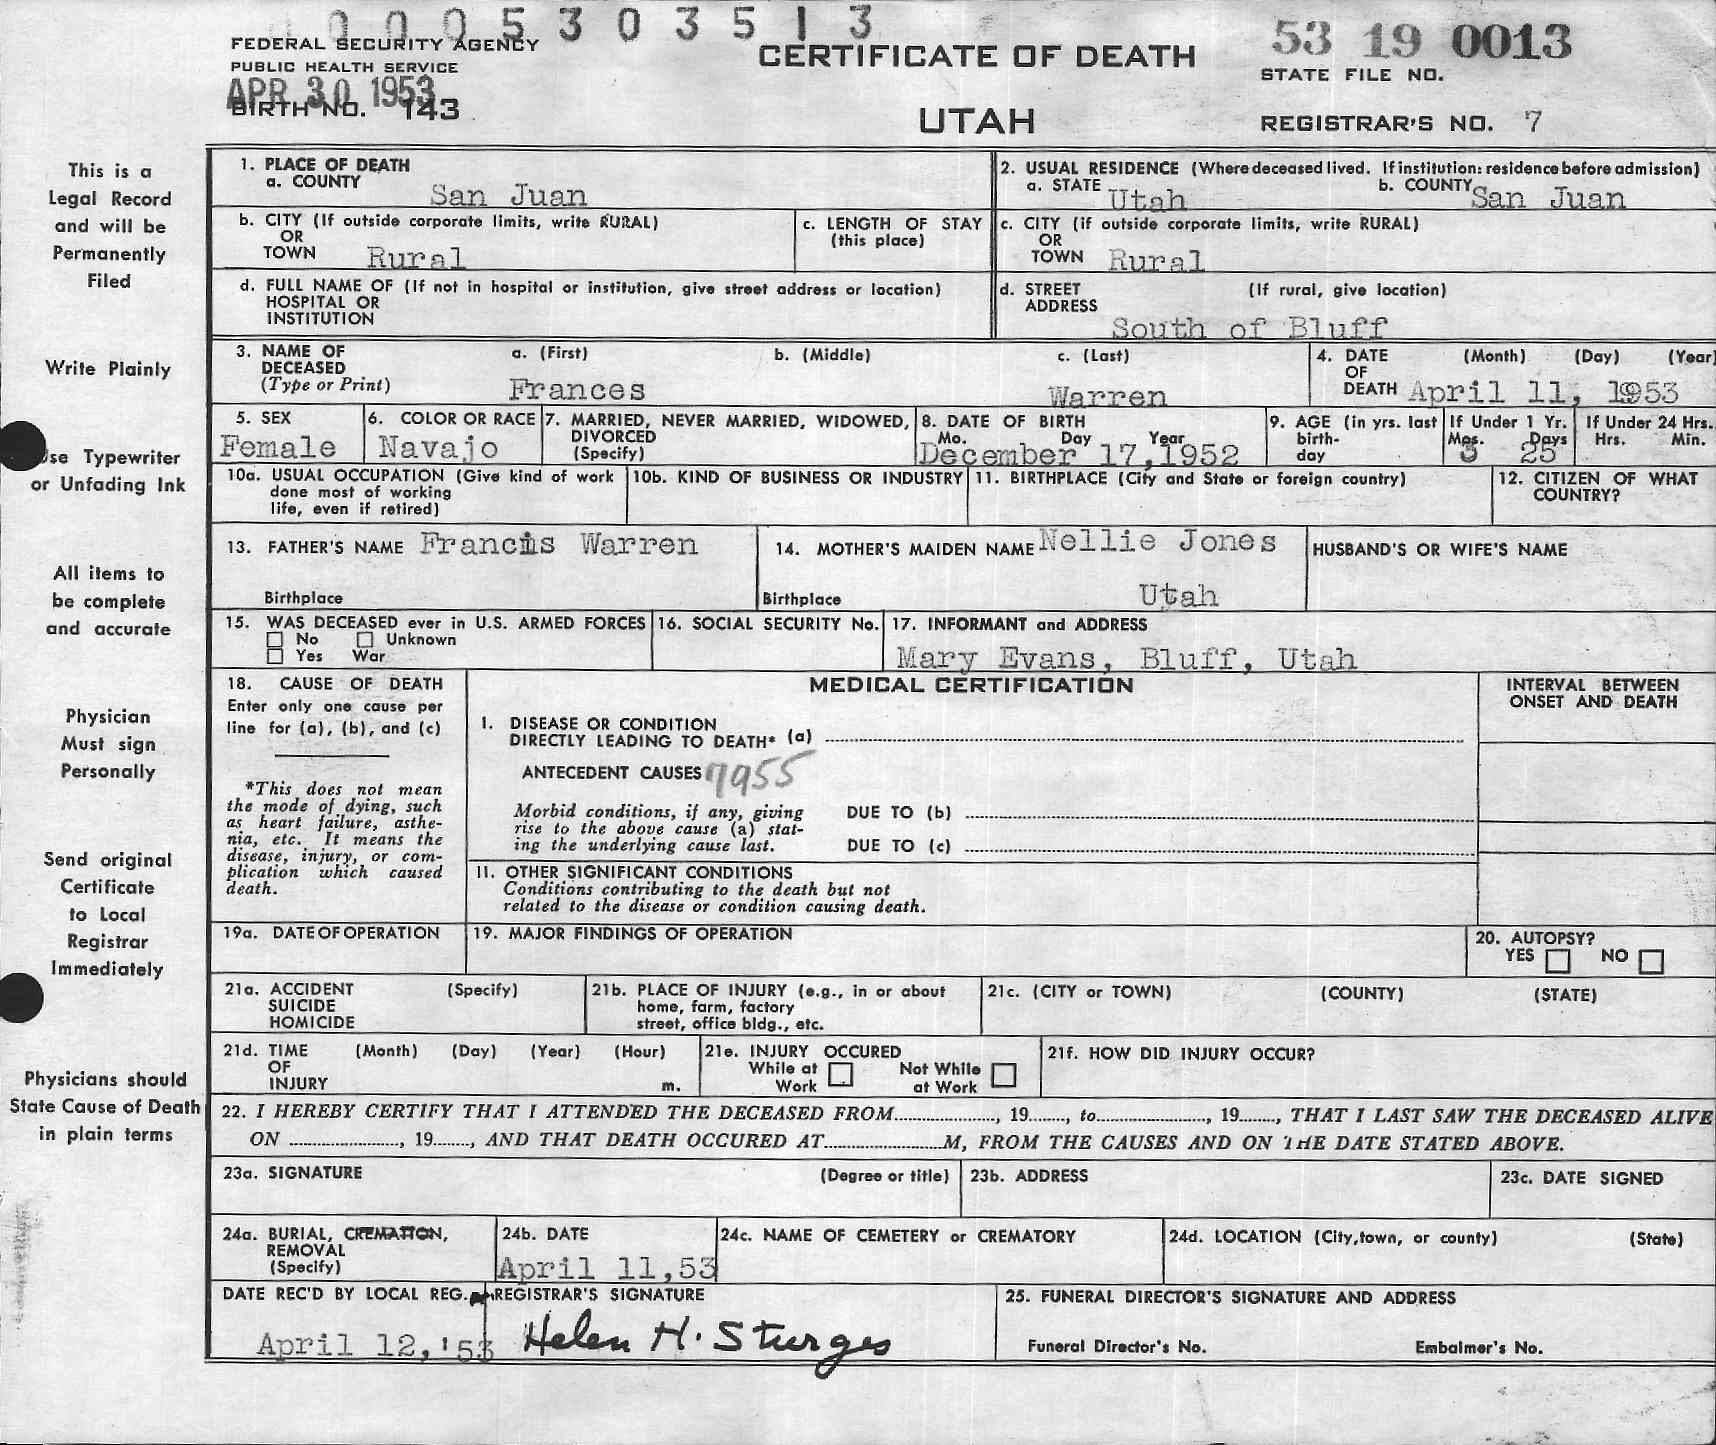 0 0 0 5 3 0 3 5 1 3
FEDERAL SECURITY AGENCY
PUBLIC HEALTH SERVICE
APR 30 1953
BIRTH NO. 143
CERTIFICATE OF DEATH
UTAH
53 19 0013
STATE FILE NO.
REGISTRAR'S NO. 7
This is a
Legal Record
and will be
Permanently
Filed
Write Plainly
Use Typewriter
or Unfading Ink
All items to
be complete
and accurate
Physician
Must sign
Personally
Send original
Certificate
to Local
Registrar
Immediately
Physicians should
State Cause of Death
in plain terms
1. PLACE OF DEATH
a. COUNTY San Juan
2. USUAL RESIDENCE (Where deceased lived. If institution: residence before admission)
a. STATE Utah b. COUNTY San Juan
b. CITY (If outside corporate limits, write RURAL)
OR
TOWN Rural
c. LENGTH OF STAY
(this place)
c. CITY (if outside corporate limits, write RURAL)
OR
TOWN Rural
d. FULL NAME OF (If not in hospital or institution, give street address or location)
HOSPITAL OR
INSTITUTION
d. STREET (If rural, give location)
ADDRESS
South of Bluff
3. NAME OF a. (First) b. (Middle) c. (Last)
DECEASED
(Type or Print) Frances Warren
4. DATE (Month) (Day) (Year)
OF
DEATH April 11, 1953
5. SEX
Female
6. COLOR OR RACE
Navajo
7. MARRIED, NEVER MARRIED, WIDOWED,
DIVORCED
(Specify)
8. DATE OF BIRTH
Mo. Day Year
December 17,1952
9. AGE (in yrs. last
birth-
day
If Under 1 Yr.
Mos. Days
3 25
If Under 24 Hrs.
Hrs. Min.
10a. USUAL OCCUPATION (Give kind of work
done most of working
life, even if retired)
10b. KIND OF BUSINESS OR INDUSTRY
11. BIRTHPLACE (City and State or foreign country)
12. CITIZEN OF WHAT
COUNTRY?
13. FATHER'S NAME Francis Warren
Birthplace
14. MOTHER'S MAIDEN NAME Nellie Jones
Birthplace Utah
HUSBAND'S OR WIFE'S NAME
15. WAS DECEASED ever in U.S. ARMED FORCES
No Unknown
Yes War
16. SOCIAL SECURITY No.
17. INFORMANT and ADDRESS
Mary Evans, Bluff, Utah
18. CAUSE OF DEATH
Enter only one cause per
line for (a), (b), and (c)
*This does not mean
the mode of dying, such
as heart failure, asthe-
nia, etc. It means the
disease, injury, or com-
plication which caused
death.
MEDICAL CERTIFICATION
INTERVAL BETWEEN
ONSET AND DEATH
I. DISEASE OR CONDITION
DIRECTLY LEADING TO DEATH* (a)
ANTECEDENT CAUSES 7955
Morbid conditions, if any, giving
rise to the above cause (a) stat-
ing the underlying cause last.
DUE TO (b)
DUE TO (c)
II. OTHER SIGNIFICANT CONDITIONS
Conditions contributing to the death but not
related to the disease or condition causing death.
19a. DATE OF OPERATION
19. MAJOR FINDINGS OF OPERATION
20. AUTOPSY?
YES NO
21a. ACCIDENT (Specify)
SUICIDE
HOMICIDE
21b. PLACE OF INJURY (e.g., in or about
home, farm, factory
street, office bldg., etc.
21c. (CITY or TOWN) (COUNTY) (STATE)
21d. TIME (Month) (Day) (Year) (Hour)
OF
INJURY m.
21e. INJURY OCCURED
While at Not While
Work at Work
21f. HOW DID INJURY OCCUR?
22. I HEREBY CERTIFY THAT I ATTENDED THE DECEASED FROM............, 19......, to............, 19......, THAT I LAST SAW THE DECEASED ALIVE
ON ............, 19......, AND THAT DEATH OCCURED AT............M, FROM THE CAUSES AND ON THE DATE STATED ABOVE.
23a. SIGNATURE (Degree or title)
23b. ADDRESS
23c. DATE SIGNED
24a. BURIAL, CREMATION,
REMOVAL
(Specify)
24b. DATE
April 11,53
24c. NAME OF CEMETERY or CREMATORY
24d. LOCATION (City,town, or county) (State)
DATE REC'D BY LOCAL REG.
April 12,'53
REGISTRAR'S SIGNATURE
Helen H. Sturges
25. FUNERAL DIRECTOR'S SIGNATURE AND ADDRESS
Funeral Director's No. Embalmer's No.